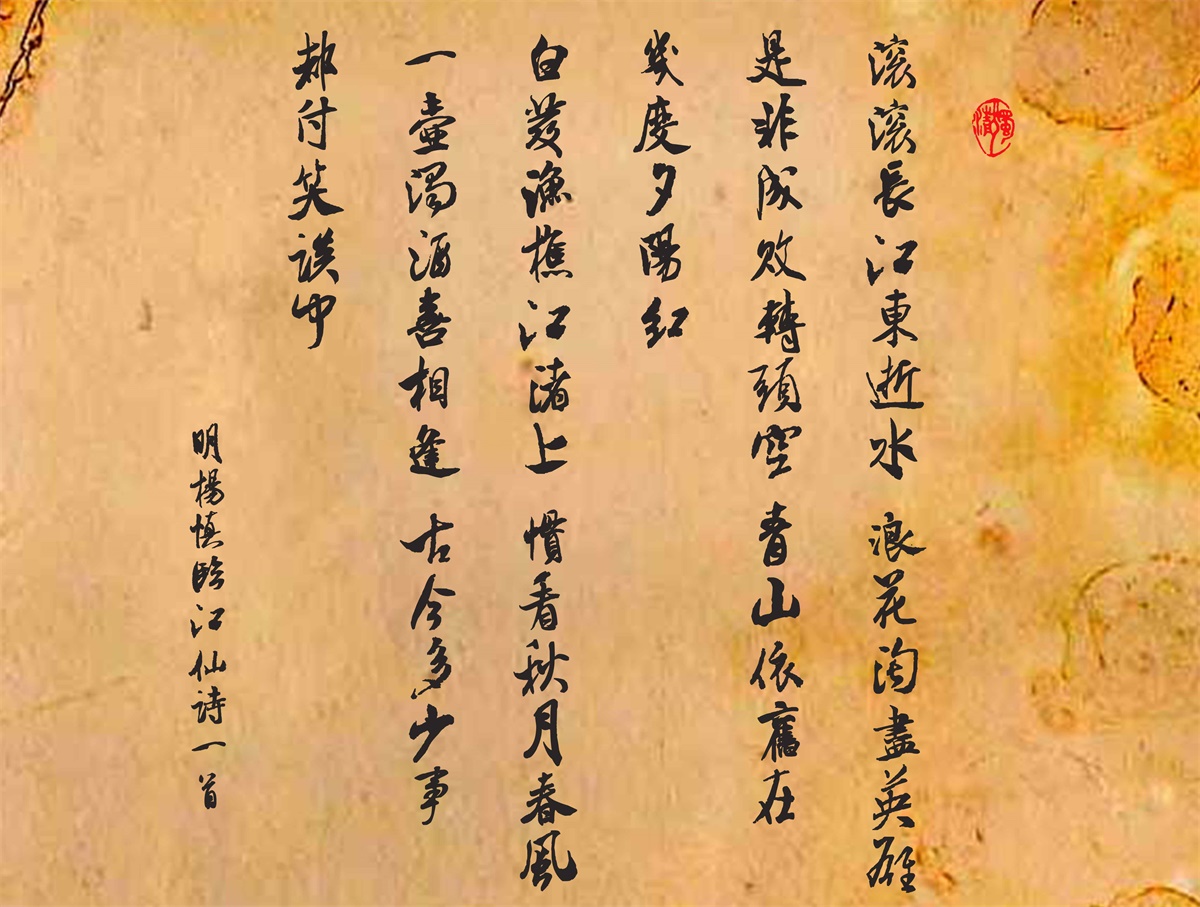 滾滾長江東逝水 浪花淘盡英雄
是非成敗轉頭空 青山依舊在
幾度夕陽紅
白發漁樵江渚上 慣看秋月春風
一壺濁酒喜相逢 古今多少事
都付笑談中
明楊慎臨江仙詩一首